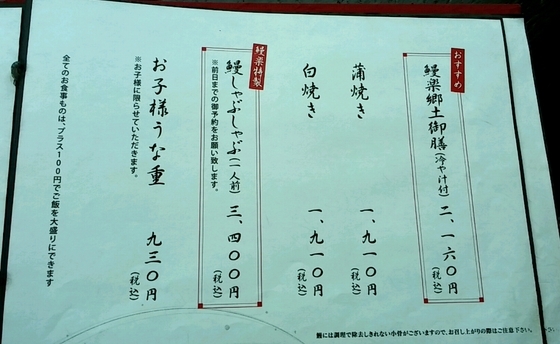 おすすめ
鰻楽郷土御膳(冷や汁付) 二、一六〇円(税込)
蒲焼き 一、九一〇円(税込)
白焼き 一、九一〇円(税込)
鰻楽特製
鰻しゃぶしゃぶ(一人前) 三、四〇〇円(税込)
※前日までの御予約をお願い致します。
お子様うな重 九三〇円(税込)
※お子様に限らせていただきます。
全てのお食事ものは、プラス100円でご飯を大盛りにできます
鰻には調理で除去しきれない小骨がございますので、お召し上がりの際はご注意下さい。